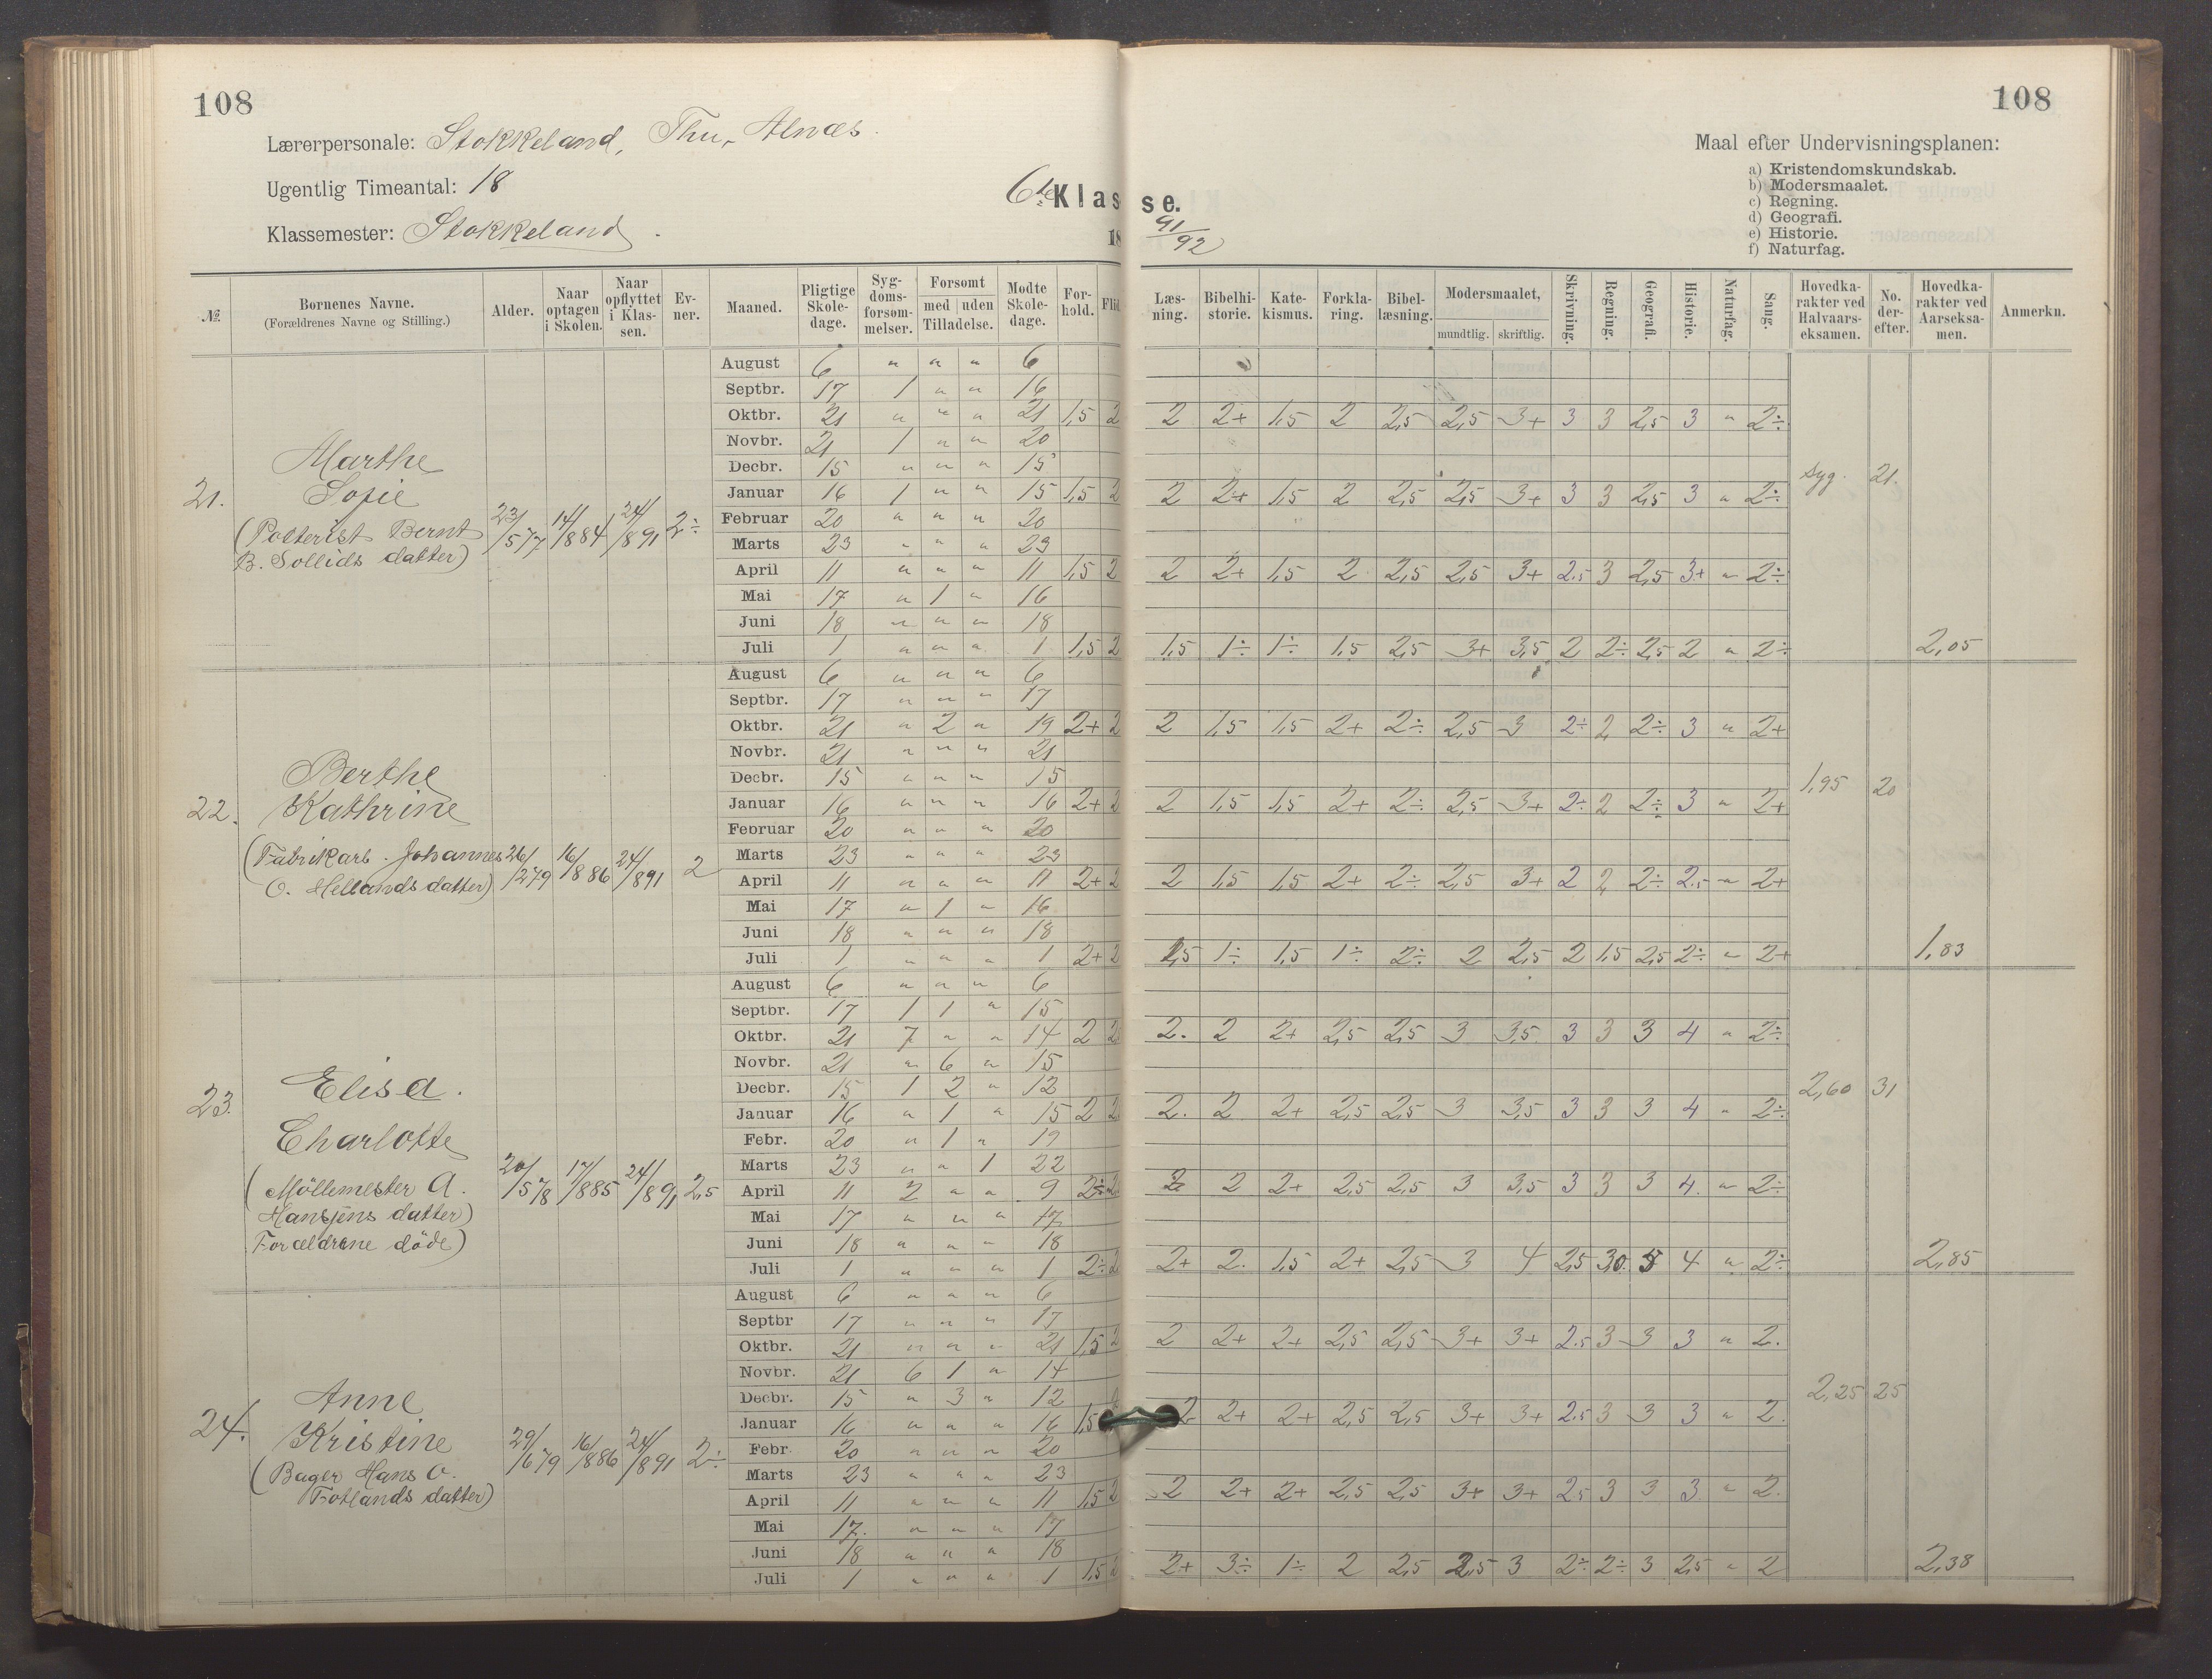 108
108
Lærerpersonale: Stokkeland, Thu, Alnæs.
Ugentlig Timeantal: 18
Klassemester: Stokkeland.
6te Klasse.
18 91/92
Maal efter Undervisningsplanen:
a) Kristendomskundskab.
b) Modersmaalet.
c) Regning.
d) Geografi.
e) Historie.
f) Naturfag.
№. Børnenes Navne. (Forældrenes Navne og Stilling.) Alder. Naar optagen i Skolen. Naar opflyttet i Klassen. Evner. Maaned. Pligtige Skoledage. Sygdomsforsømmelser. Forsømt med uden Tilladelse. Mødte Skoledage. Forhold. Flid Læsning. Bibelhistorie. Katekismus. Forklaring. Bibellæsning. Modersmaalet, mundtlig. skriftlig. Skrivning. Regning. Geografi. Historie. Naturfag. Sang. Hovedkarakter ved Halvaarseksamen. No. derefter. Hovedkarakter ved Aarseksamen. Anmerkn.
21. Marthe Sofie
(Potterist Bernt B. Sollids datter) 23/5 77 14/8 84 24/8 91 2÷
August 6 " " " 6
Septbr. 17 1 " " 16
Oktbr. 21 " " " 21 1,5 2 2 2+ 1,5 2 2,5 2,5 3+ 3 3 2,5 3 " 2÷
Novbr. 21 1 " " 20
Decbr. 15 " " " 15 syg. 21.
Januar 16 1 " " 15 1,5 2 2 2+ 1,5 2 2,5 2,5 3+ 3 3 2,5 3 " 2÷
Februar 20 " " " 20
Marts 23 " " " 23
April 11 " " " 11 1,5 2 2 2+ 1,5 2 2,5 2,5 3+ 2.5 3 2,5 3+ " 2÷
Mai 17 " 1 " 16
Juni 18 " " " 18
Juli 1 " " " 1 1,5 2 1,5 1÷ 1÷ 1,5 2,5 3+ 3,5 2 2÷ 2,5 2 " 2÷ 2,05
22. Berthe Kathrine
(Fabrikarb. Johannes O. Hellands datter) 26/2 79 16/8 86 24/8 91 2
August 6 " " " 6
Septbr. 17 " " " 17
Oktbr. 21 " 2 " 19 2+ 2 2 1,5 1,5 2+ 2÷ 2,5 3 2÷ 2 2÷ 3 " 2+
Novbr. 21 " " " 21
Decbr. 15 " " " 15 1,95 20
Januar 16 " " " 16 2+ 2 2 1,5 1,5 2+ 2÷ 2,5 3+ 2÷ 2 2÷ 3 " 2+
Februar 20 " " " 20
Marts 23 " " " 23
April 11 " " " 11 2+ 2 2 1,5 1,5 2+ 2÷ 2,5 3+ 2 2 2÷ 2.5 " 2+
Mai 17 " 1 " 16
Juni 18 " " " 18
Juli 1 " " " 1 2+ 2 1,5 1÷ 1,5 1÷ 2÷ 2 2,5 2 1,5 2,5 2÷ " 2+ 1,83
23. Elisa. Charlotte
(Möllemester A. Hansens datter)
Forældrene döde) 20/5 78 17/8 85 24/8 91 2,5
August 6 " " " 6
Septbr. 17 1 1 " 15
Oktbr. 21 7 " " 14 2 2 2. 2 2+ 2,5 2,5 3 3,5 3 3 3 4 " 2÷
Novbr. 21 " 6 " 15
Decbr. 15 1 2 " 12 2,60 31
Januar 16 " 1 " 15 2 2 2. 2 2+ 2,5 2,5 3 3,5 3 3 3 4 " 2÷
Febr. 20 " 1 " 19
Marts 23 " " 1 22
April 11 2 " " 9 2÷ 2 2 2 2+ 2,5 2,5 3 3,5 3 3 3 4. " 2÷
Mai 17 " " " 17
Juni 18 " " " 18
Juli 1 " " " 1 2÷ 2 2+ 2. 1,5 2+ 2,5 3 4 2,5 30. 5 4 " 2÷ 2,85
24. Anne Kristine
(Bager Hans O. Fotlands datter) 29/6 79 16/8 86 24/8 91 2÷
August 6 " " " 6
Septbr 17 " " " 17
Oktbr. 21 " " " 21 1,5 2 2 2+ 2+ 2,5 2,5 3+ 3+ 2.5 3 3 3 " 2.
Novbr. 21 6 1 " 14
Decbr. 15 " 3 " 12 2,25 25
Januar 16 " " " 16 1,5 2 2+ 2+ 2,5 2,5 3+ 3+ 2.5 3 3 3 " 2.
Febr. 20 " " " 20
Marts 23 " " " 23
April 11 " " " 11 1,5 2 2 2+ 2+ 2,5 2,5 3+ 3+ 2.5 3 3 3. " 2.
Mai 17. " " " 17
Juni 18 " " " 18
Juli 1 " " " 1 1,5 2 2+ 3÷ 1÷ 2 2,5 2,5 3 2÷ 2÷ 3 2,5 " 2 2,38